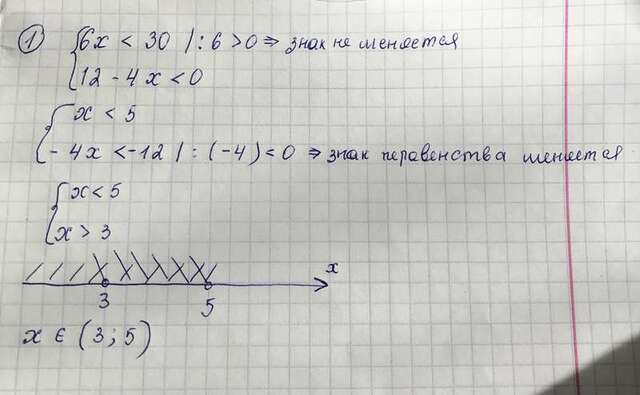 ① { 6x < 30 | : 6 > 0 ⇒ знак не меняется
12 - 4x < 0
{ x < 5
- 4x < -12 | : (-4) < 0 ⇒ знак неравенства меняется
{ x < 5
x > 3
x
3 5
x ∈ (3; 5)